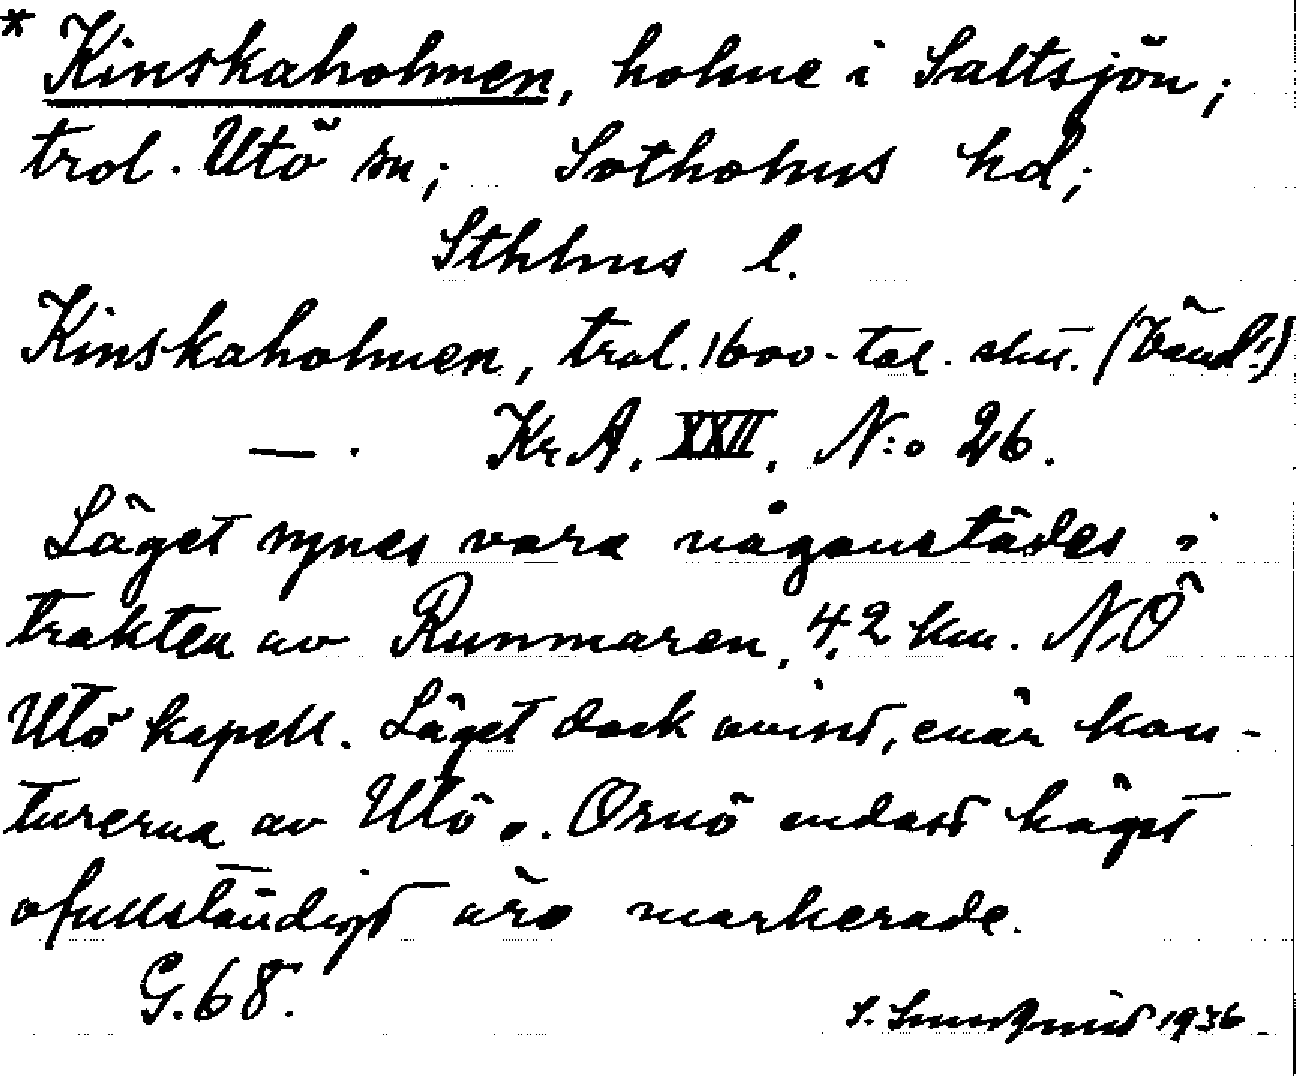 * Kinskaholmen, holme i Saltsjön;
trol. Utö sn; Sotholms hd;
Sthlms l.
Kinskaholmen, trol. 1600-tal. shu. (Vänd!)
— . Kr.A. XXII. N:o 26.
Läget synes vara någonstädes i
trakten av Runmaren, 4,2 km. NÖ
Utö kapell. Läget dock ovisst, enär kon-
turerna av Utö o. Ornö endast högst
ofullständigt äro markerade.
G. 68.
1936